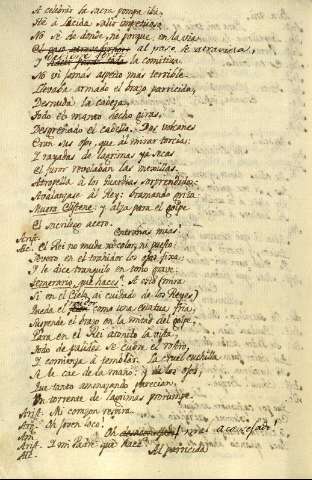 A celebrar la sacra pompa iba,
He á Lícida salir impetuoso
No sé de donde, ne porque en la via
al paso le atraviesa,
Y la comitiva.
No vi jamas aspecto mas terrible.
Llevaba armado el brazo parricida,
Desnuda la cabeza,
Todo el manto hecho giras,
Despreñado el cabello. Dos volcanes
Eran sus ojos, que al mirar torcia:
I rayadas de lagrimas ya secas
el furor revelaban las mexillas.
Atropella á los Guardias sorprendidos:
Avalanzase al Rey: bramando grita
Muera Clistene: y alza para el golpe
El sacrilego acero.
Entrañas mias!
Alc. El Rei no muda ni color, ni puesto:
Severo en el traidor los ojos fixa:
I le dice tranquilo en tono grave:
Temerario, que haces? A esto (mira
Si en el Cielo ai cuidado de los Reyes)
Queda el como una estatua fria;
Suspende el brazo en la mitad del golpe:
Para en el Rei atonito la vista:
Todo de palidez se cubre el rostro,
I comienza á temblar. La cruel cuchilla
Se le cae de la mano: y de los ojos,
Que tanto amenazando parecian,
Un torrente de lagrimas prorumpe.
Arist. Mi corazon respira.
Arg. Oh joven loco!
Am. Oh
Arist. I mi Padre que haze?
Alc. Al parricida